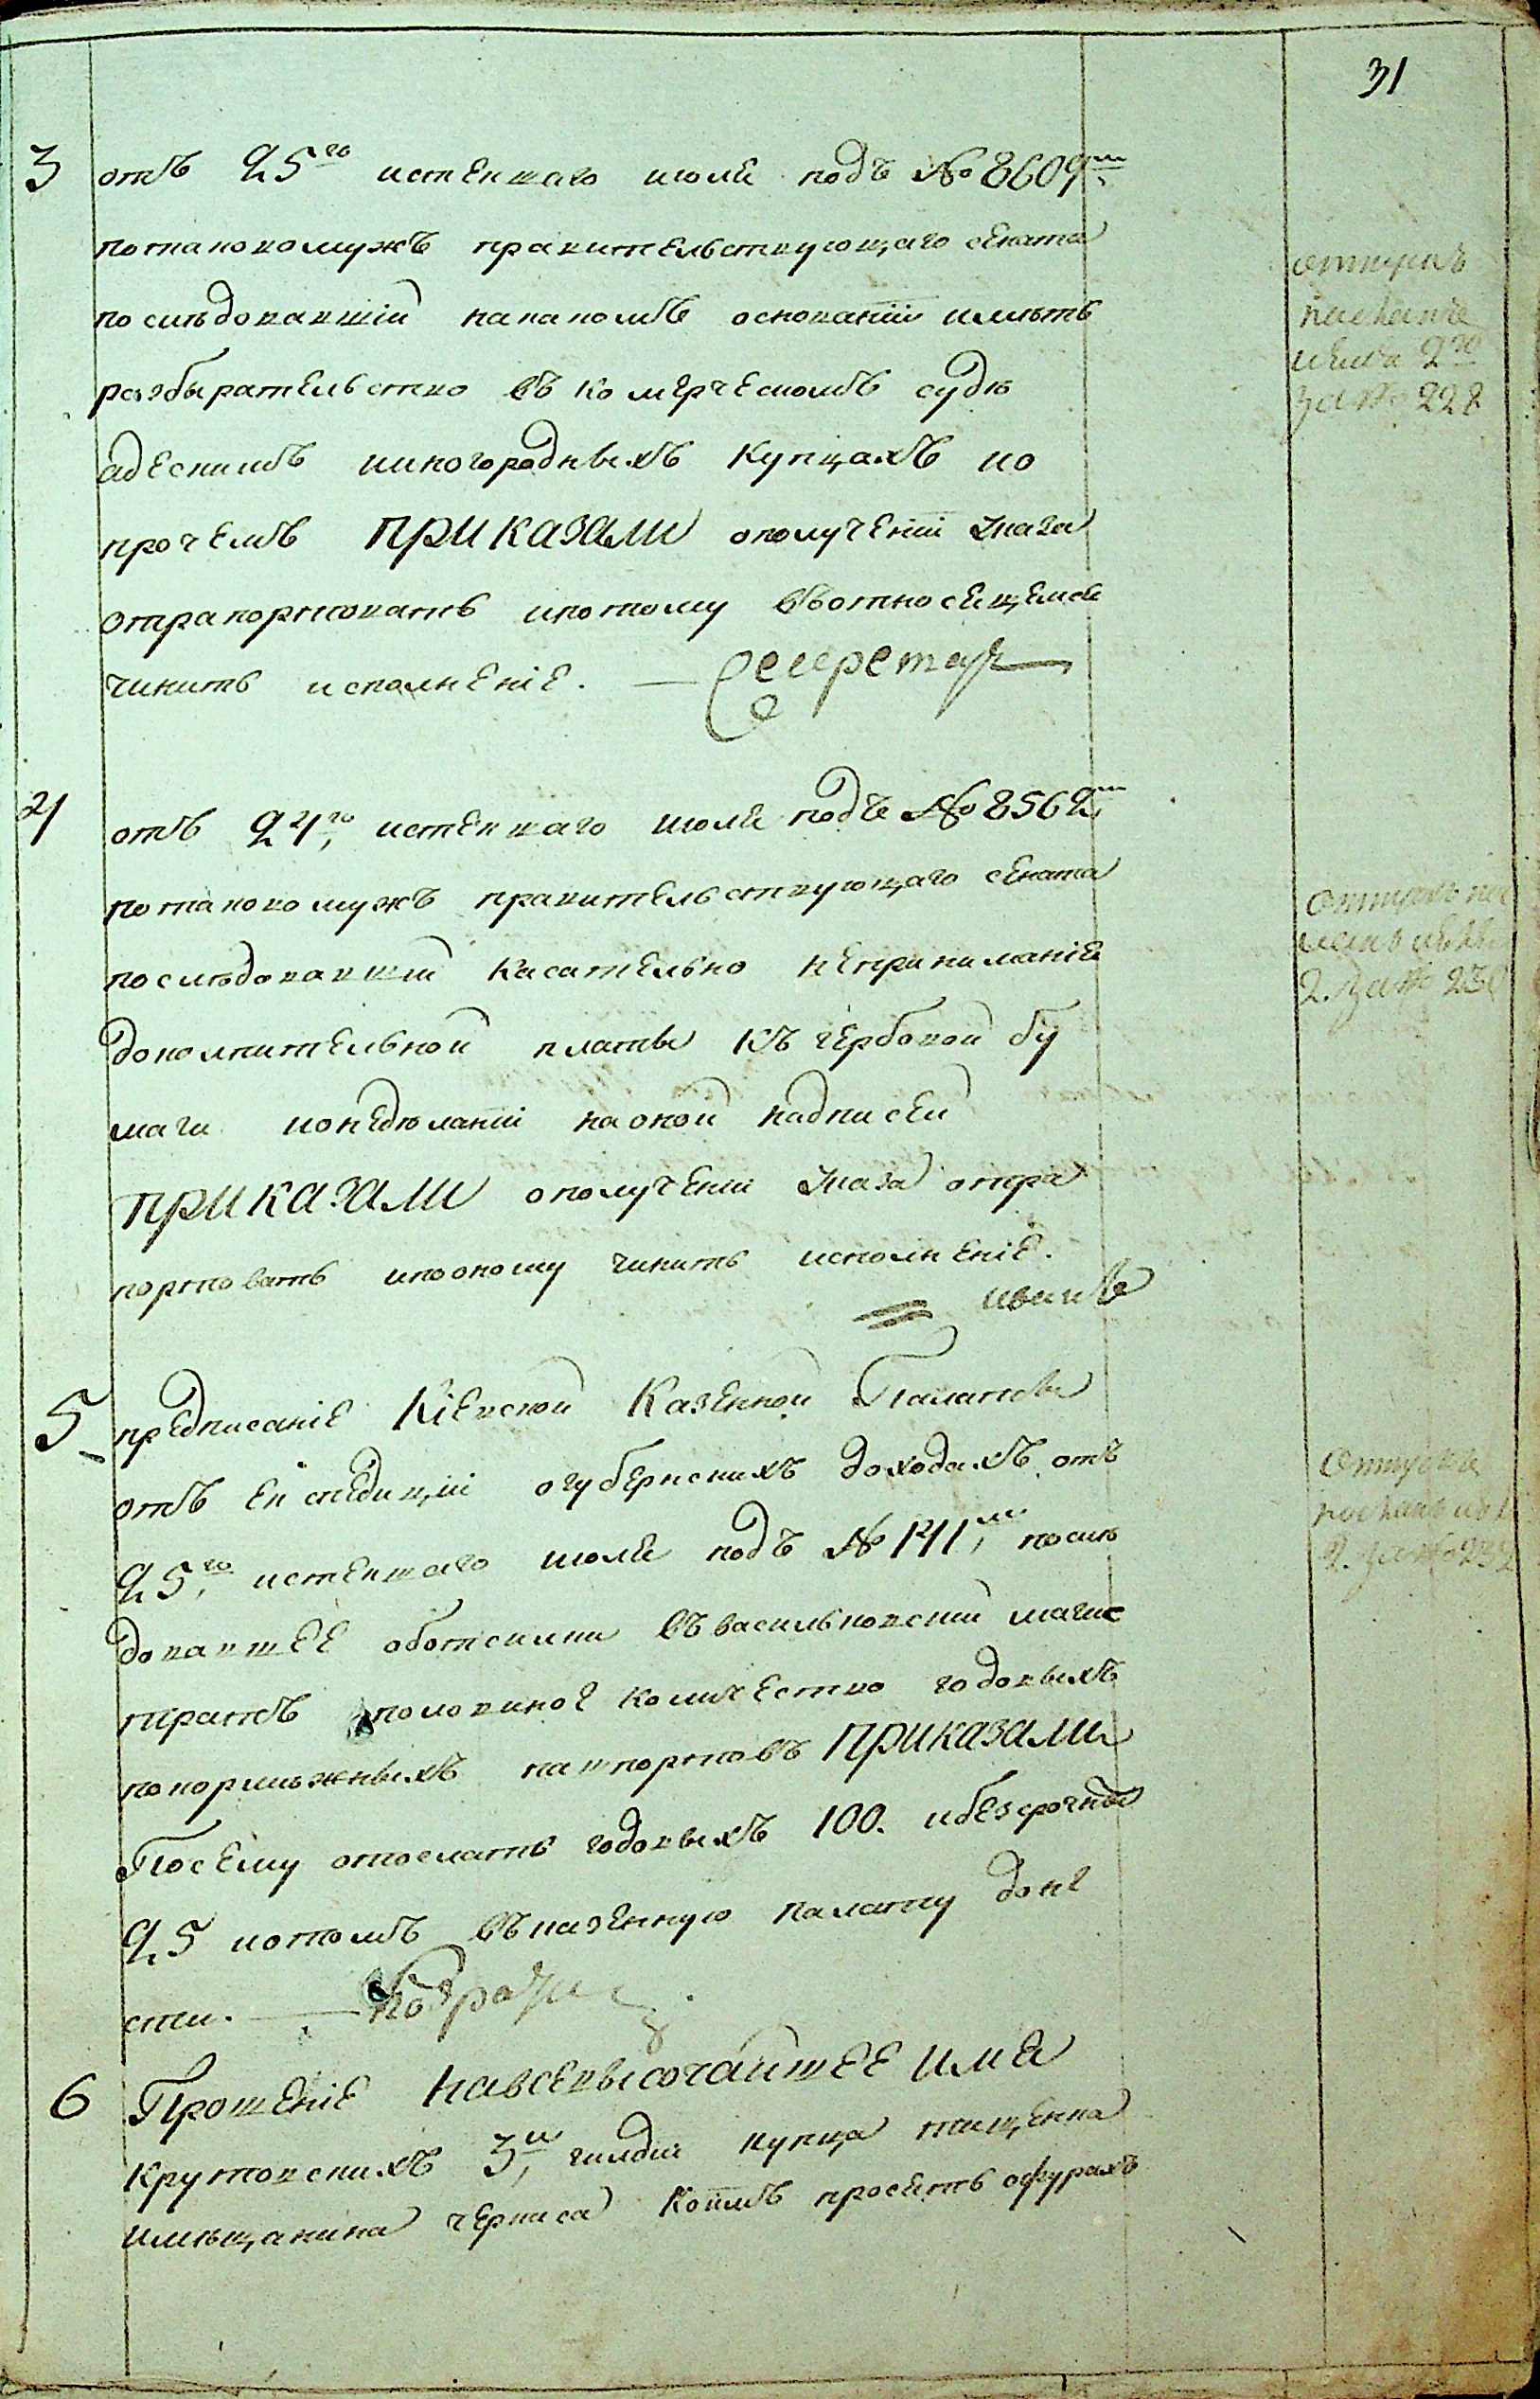 31
3 отъ 25го истекшаго июля подъ № 8609м
потаковомужъ правительствующаго сената
последовавшiй накакомъ основанiи иметь
разбырательство въ комерческомъ суде
адескимъ ииногороднымъ купцахъ ио
прочемъ приказали ополученiи указа
отрапортовать ипотому въотносящемся
чинить исполненiе. — Секретарь
отпускъ
писанъ
июля 2го
за № 228
4 отъ 24го истекшаго июля подъ № 8562м
потаковомужъ правительствующаго сената
последовавшiй касательно непринимания
дополнительной платы къ гербовой бу
маги ионеделанiи наоной надписей
приказали ополученiи указа отра
портовать ипооному чинить исполненiе.
2. за № 230
5 предписанiе Кiевской Казенной Палаты
отъ експедицiи огубернскихъ доходахъ отъ
25го истекшаго июля подъ № 141м после
довавшее оботсилки въ васильковский магис
тратъ половиное количество годовыхъ
покормежныхъ пашпортовъ приказали
Посему отослать годовыхъ 100. ибезсрочны
25 иотомъ въказенную палату доне
сти. —
отпускъ
2. за № 232
6 Прошенiе навсевысочайшее имя
крутовскихъ 3й гилдiи купца тищенка
имещанина черниса коимъ просятъ офурахъ